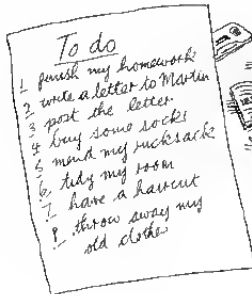 To do
1 finish my homework
2 write a letter to Martin
3 post the letter
4 buy some socks
5 mend my rucksack
6 tidy my room
7 have a haircut
8 throw away my
old clothes